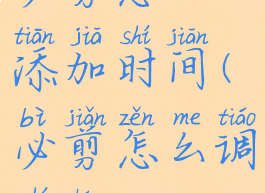 tiān jiā shí jiān
添加时间(
bì jiǎn zěn me tiáo
必剪怎么调